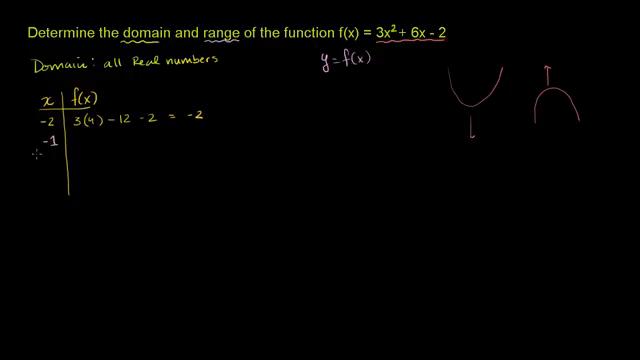 Determine the domain and range of the function f(x) = 3x² + 6x - 2
Domain: all Real numbers
y = f(x)
x f(x)
-2 3(4) - 12 - 2 = -2
-1